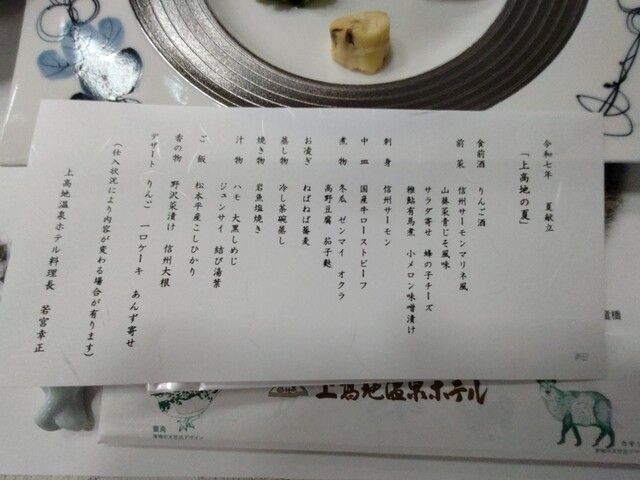 令和七年　夏献立
「上高地の夏」
食前酒　りんご酒
前菜　信州サーモンマリネ風
山葵菜青じそ風味
サラダ寄せ　蜂の子チーズ
稚鮎有馬煮　小メロン味噌漬け
刺身　信州サーモン
中皿　国産牛ローストビーフ
煮物　冬瓜　ゼンマイ　オクラ
高野豆腐　茄子麩
お凌ぎ　ねばねば蕎麦
蒸し物　冷し茶碗蒸し
焼き物　岩魚塩焼き
汁物　ハモ　大黒しめじ
ジュンサイ　結び湯葉
ご飯　松本平産こしひかり
香の物　野沢菜漬け　信州大根
デザート　りんご　一口ケーキ　あんず寄せ
（仕入状況により内容が変わる場合が有ります）
上高地温泉ホテル料理長　若宮幸正
上高地温泉ホテル
雷鳥